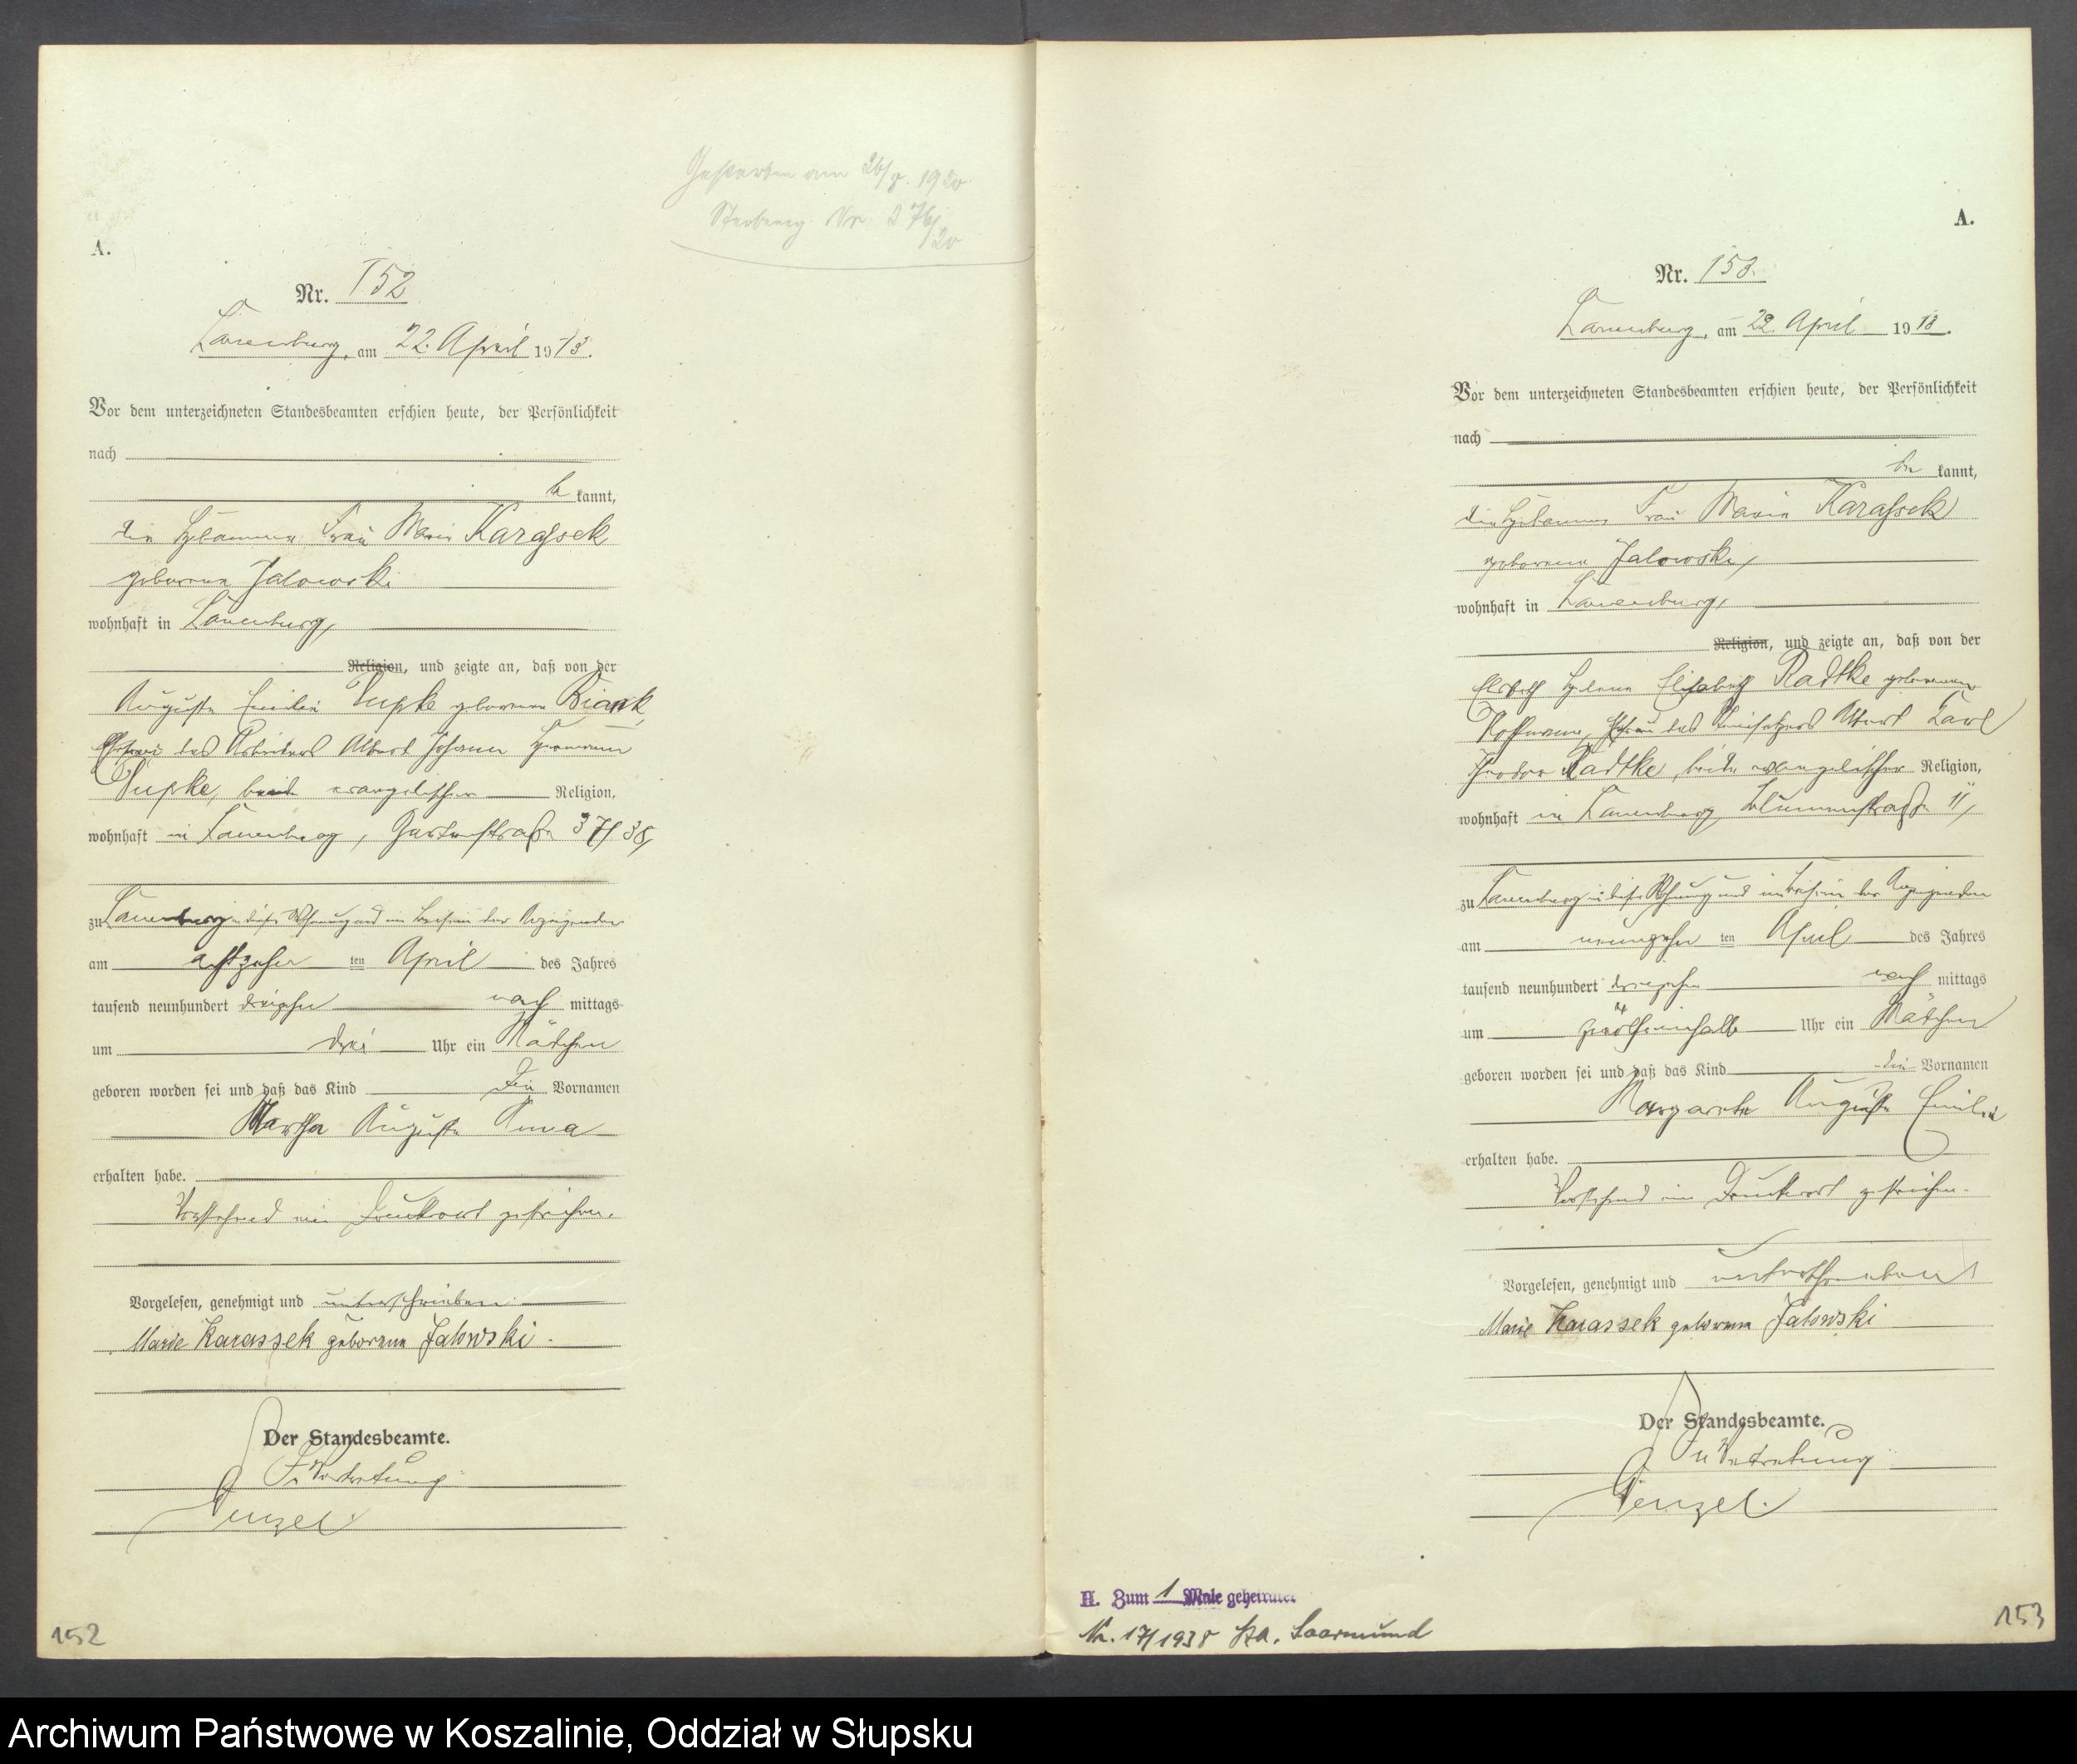 Gestorben am 26/8. 1920
Sterbereg. Nr 276/20
A.
Nr. 152
Lauenburg, am 22. April 1913.
Vor dem unterzeichneten Standesbeamten erschien heute, der Persönlichkeit
nach
be kannt,
die Hebamme Frau Marie Karassek
geborene Jalowski
wohnhaft in Lauenburg,
Religion, und zeigte an, daß von der
Auguste Emilie geborene
Ehefrau des Arbeiters Albert Johann Hermann
beide evangelischer Religion,
wohnhaft in Lauenburg, Gartenstraße 37/38,
zu Lauenburg in dieser Wohnung und im Beisein der Anzeigenden
am achtzehn ten April des Jahres
tausend neunhundert dreizehn nach mittags
um drei Uhr ein Mädchen
geboren worden sei und daß das Kind die Vornamen
Martha Auguste Anna
erhalten habe.
Vorstehend ein Druckwort gestrichen.
Vorgelesen, genehmigt und unterschrieben
Marie Karassek geborene Jalowski.
Der Standesbeamte.
In Vertretung
Genzel
152
A.
Nr. 153.
Lauenburg, am 22. April 1913.
Vor dem unterzeichneten Standesbeamten erschien heute, der Persönlichkeit
nach
be kannt,
die Hebamme Frau Marie Karassek
geborene Jalowski,
wohnhaft in Lauenburg,
Religion, und zeigte an, daß von der
Elsbeth Helene Elisabeth Radtke geborenen
Hoffmann, Ehefrau des Albert Carl
Theodor Radtke, beide evangelischer Religion,
wohnhaft in Lauenburg Blumenstraße 11,
zu Lauenburg in dieser Wohnung und im Beisein der Anzeigenden
am neunzehn ten April des Jahres
tausend neunhundert dreizehn nach mittags
um zwölfeinhalb Uhr ein Mädchen
geboren worden sei und daß das Kind die Vornamen
Margarete Auguste Emilie
erhalten habe.
Vorstehend ein Druckwort gestrichen.
Vorgelesen, genehmigt und unterschrieben
Marie Karassek geborene Jalowski
Der Standesbeamte.
In Vertretung
Genzel.
H. Zum 1 Male geheiratet
Nr. 17/1938 StA. Saarmund
153
Archiwum Państwowe w Koszalinie, Oddział w Słupsku